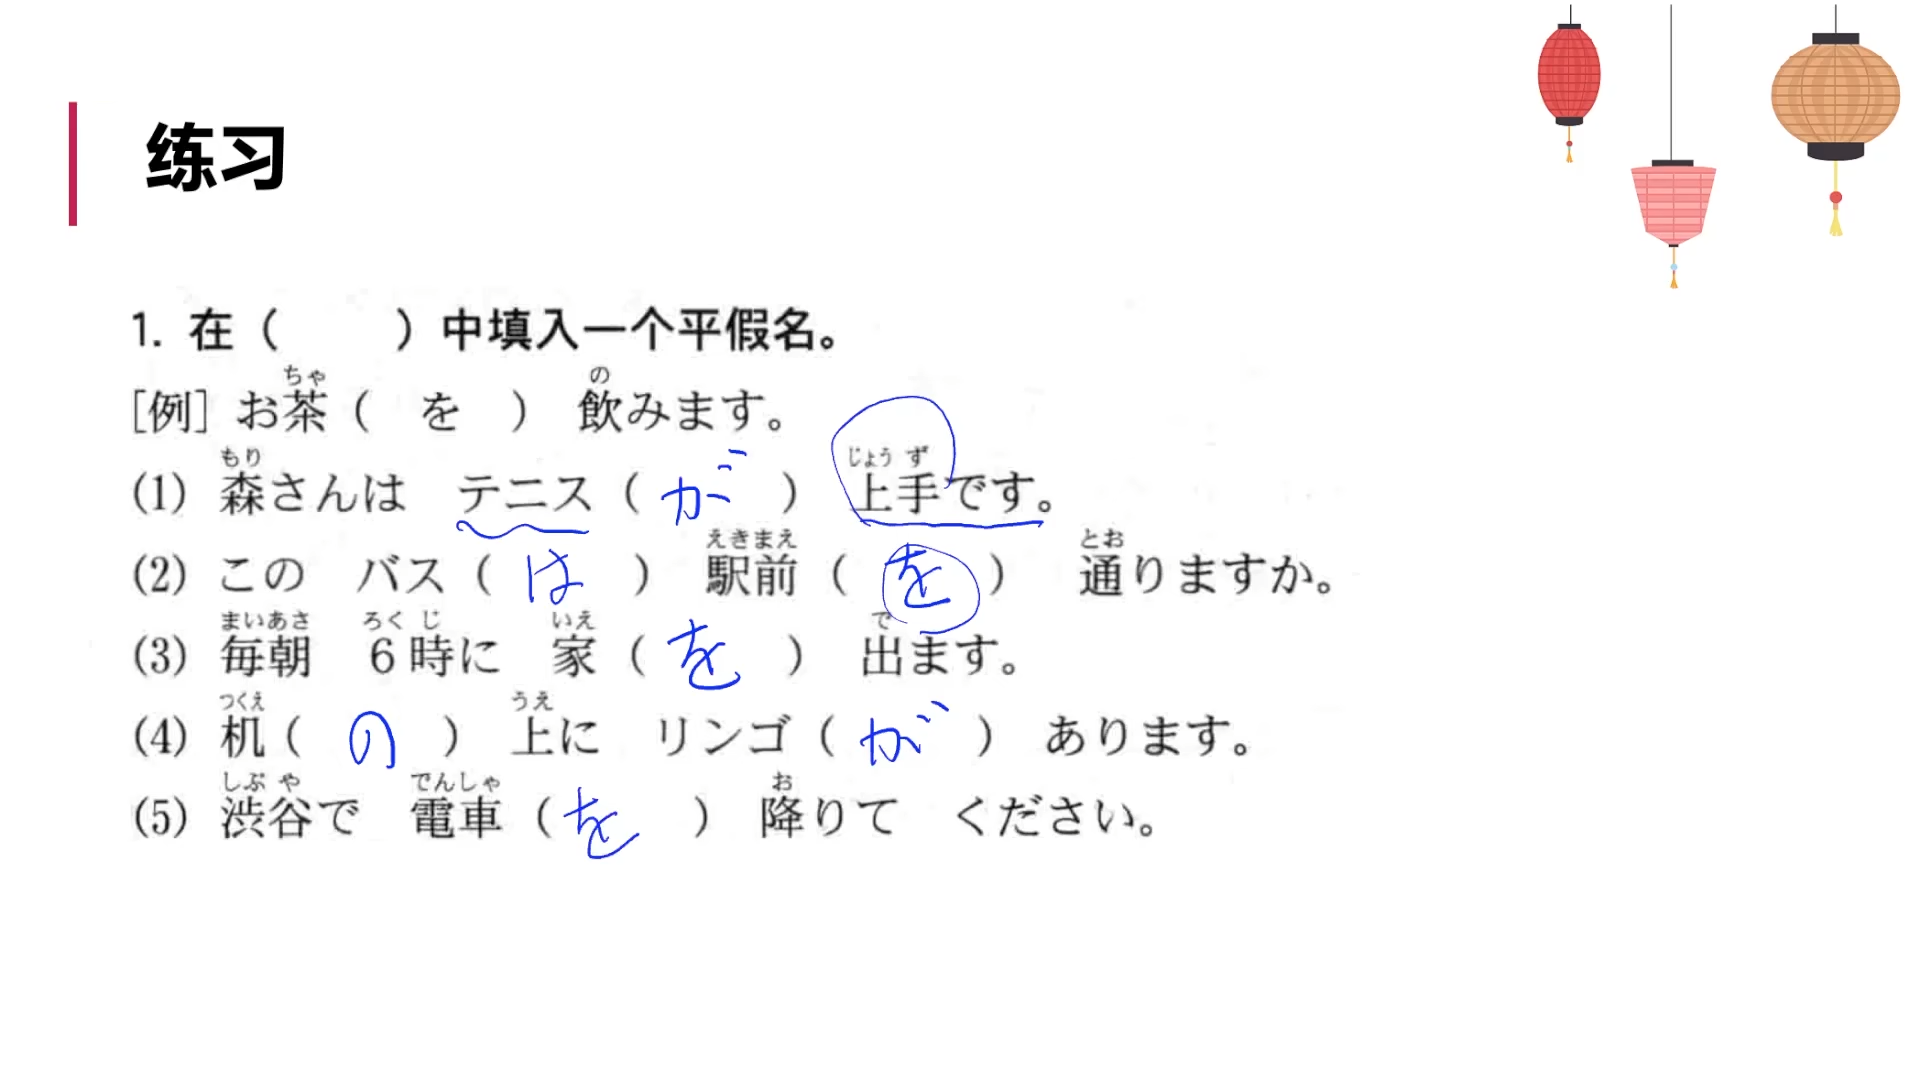 练习
1. 在（　　）中填入一个平假名。
ちゃ　の
[例] お茶（ を ） 飲みます。
もり　じょうず
(1) 森さんは テニス（ が ） 上手です。
えきまえ　とお
(2) この バス（ は ） 駅前（ を ） 通りますか。
まいあさ　ろくじ　いえ　で
(3) 毎朝 6時に 家（ を ） 出ます。
つくえ　うえ
(4) 机（ の ） 上に リンゴ（ が ） あります。
しぶや　でんしゃ　お
(5) 渋谷で 電車（ を ） 降りて ください。